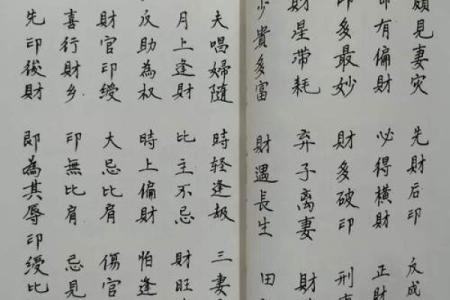 頗見妻灾 先財后印 反成
命有偏財 必得横財 正財
印多最妙 財多破印 刑
財星带耗 弃子离妻 財
少貴多富 財遇長生 田
夫唱婦隨 時轻逢 三妻
月上逢財 比主不忌 財旺
反助為权 時上偏財 怕逢
財官印綬 大忌比肩 傷官
喜行財乡 印無比肩 忌見
先印後財 即為其辱 印綬比